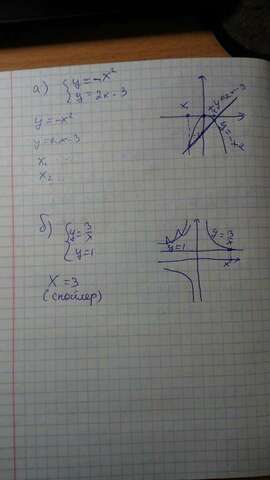 а) { y = -x²
y = 2x - 3
y = -x²
y = 2x - 3
x₁
x₂
x₁
y = 2x - 3
y = -x²
б) { y = 3/x
y = 1
x = 3
(спойлер)
y = 1
y = 3/x
x